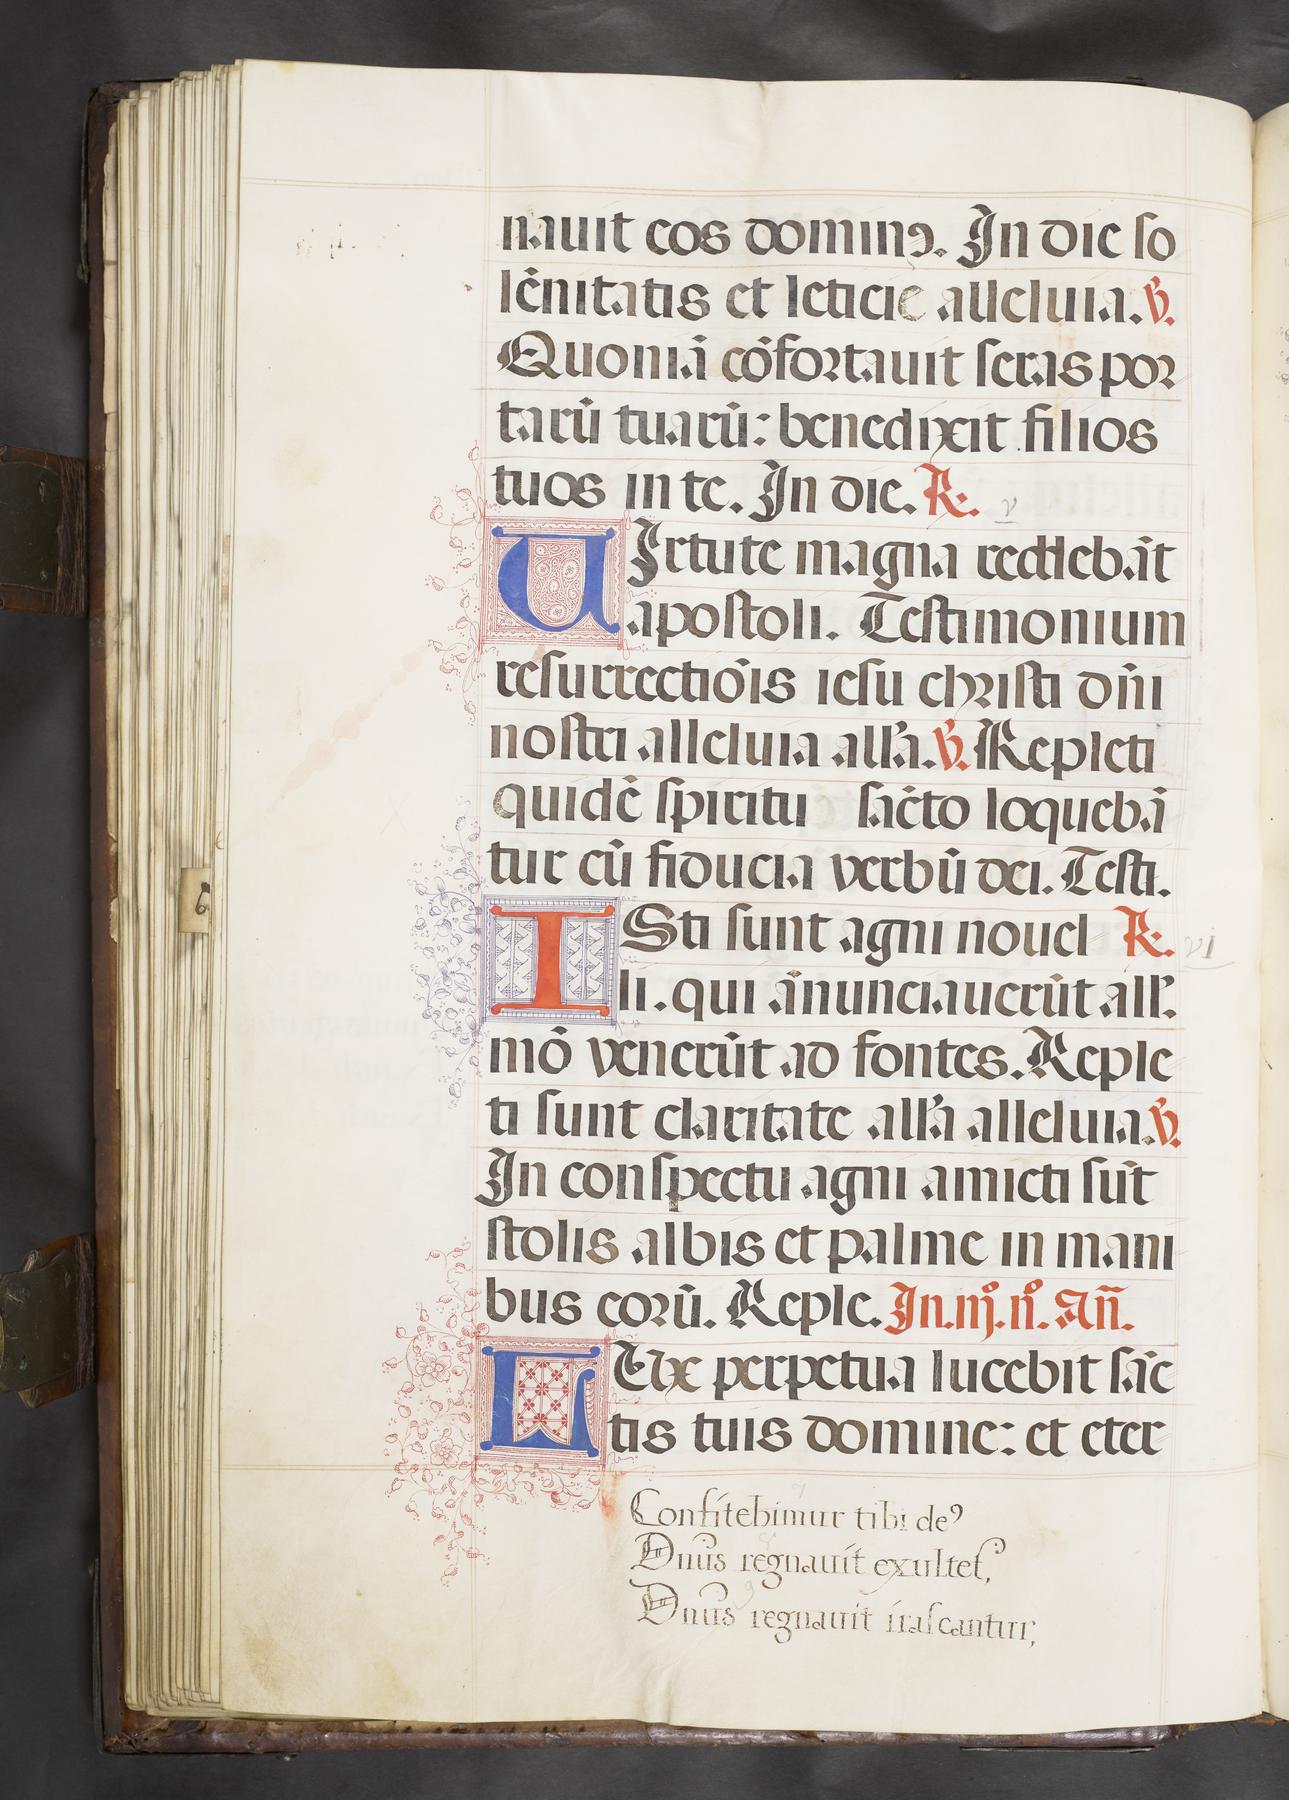 nauit eos dominꝰ. In die so
lēnitatis et leticie alleluia. ℣.
Quoniā cōfortauit seras por
tarū tuarū: benedixit filios
tuos in te. In die. ℟. v
UIrtute magna reddebāt
apostoli. Testimonium
resurrectiōis iesu christi dn̄i
nostri alleluia all'a. ℣. Repleti
quidē spiritu sācto loquebā
tur cū fiducia verbū dei. Testi.
ISti sunt agni nouel ℟. vi
li. qui ānunciauerūt all'.
mō venerūt ad fontes. Reple
ti sunt claritate all'a alleluia. ℣.
In conspectu agni amicti sūt
stolis albis et palme in mani
bus corū. Reple. In.iij.º n.º an̄.
LUx perpetua lucebit sāc
tis tuis domine: et eter
Confitebimur tibi deꝰ
Dnūs regnauit exultet,
Dnūs regnauit irascantur,
6